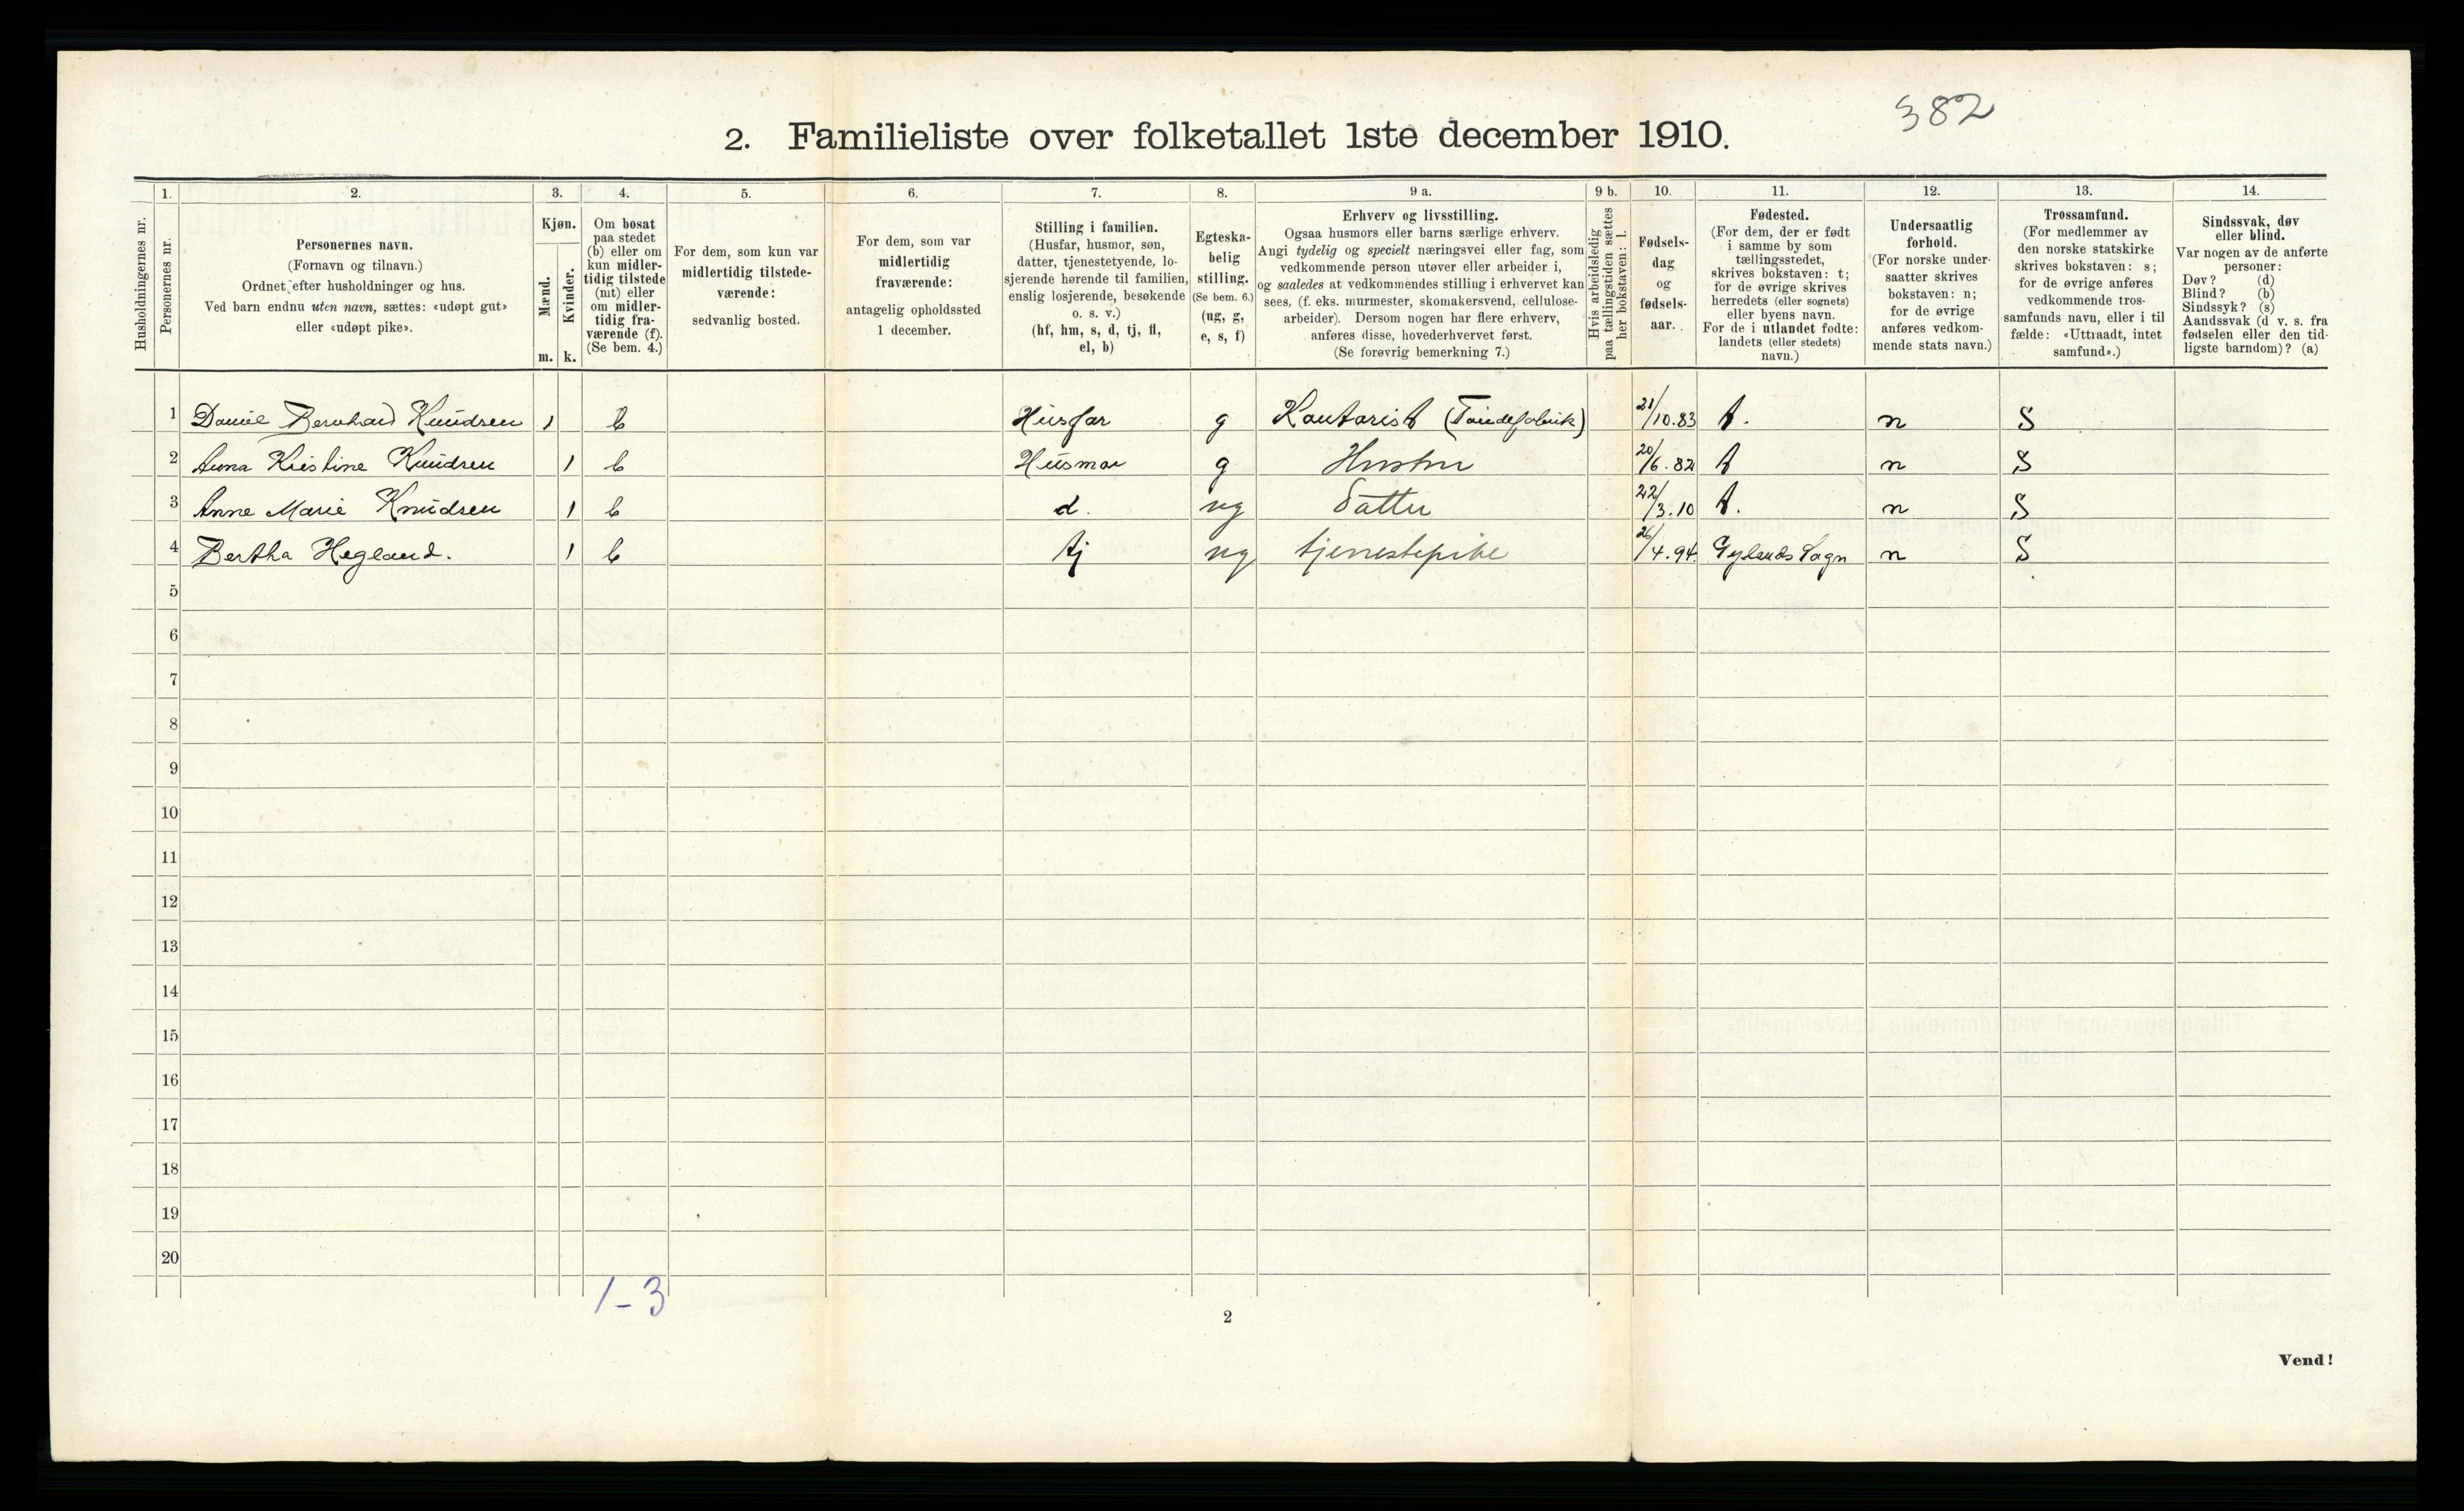 382
2. Familieliste over folketallet 1ste december 1910.
Husholdningernes nr.
1.
Personernes nr.
2.
Personernes navn.
(Fornavn og tilnavn.)
Ordnet efter husholdninger og hus.
Ved barn endnu uten navn, sættes: «udøpt gut»
eller «udøpt pike».
3.
Kjøn.
Mænd.
Kvinder.
m. k.
4.
Om bosat
paa stedet
(b) eller om
kun midler-
tidig tilstede
(mt) eller
om midler-
tidig fra-
værende (f).
(Se bem. 4.)
5.
For dem, som kun var
midlertidig tilstede-
værende:
sedvanlig bosted.
6.
For dem, som var
midlertidig
fraværende:
antagelig opholdssted
1 december.
7.
Stilling i familien.
(Husfar, husmor, søn,
datter, tjenestetyende, lo-
sjerende hørende til familien,
enslig losjerende, besøkende
o. s. v.)
(hf, hm, s, d, tj, fl,
el, b)
8.
Egteska-
belig
stilling.
(Se bem. 6.)
(ug, g,
e, s, f)
9 a.
Erhverv og livsstilling.
Ogsaa husmors eller barns særlige erhverv.
Angi tydelig og specielt næringsvei eller fag, som
vedkommende person utøver eller arbeider i,
og saaledes at vedkommendes stilling i erhvervet kan
sees, (f. eks. murmester, skomakersvend, cellulose-
arbeider). Dersom nogen har flere erhverv,
anføres disse, hovederhvervet først.
(Se forøvrig bemerkning 7.)
9 b.
Hvis arbeidsledig
paa tællingstiden sættes
her bokstaven: l.
10.
Fødsels-
dag
og
fødsels-
aar.
11.
Fødested.
(For dem, der er født
i samme by som
tællingsstedet,
skrives bokstaven: t;
for de øvrige skrives
herredets (eller sognets)
eller byens navn.
For de i utlandet fødte:
landets (eller stedets)
navn.)
12.
Undersaatlig
forhold.
(For norske under-
saatter skrives
bokstaven: n;
for de øvrige
anføres vedkom-
mende stats navn.)
13.
Trossamfund.
(For medlemmer av
den norske statskirke
skrives bokstaven: s;
for de øvrige anføres
vedkommende tros-
samfunds navn, eller i til
fælde: «Uttraadt, intet
samfund».)
14.
Sindssvak, døv
eller blind.
Var nogen av de anførte
personer:
Døv? (d)
Blind? (b)
Sindssyk? (s)
Aandssvak (d v. s. fra
fødselen eller den tid-
ligste barndom)? (a)
1 Daniel Bernhard Knudsen 1 b Husfar g Kontorist (Tøndefabrik) 21/10.83 t. n S
2 Anna Kristine Knudsen 1 b Husmor g Hustru 20/6.82 t n S
3 Anne Marie Knudsen 1 b d. ug Datter 22/3.10 t. n S
4 Bertha Hegland. 1 b tj ug tjenestepike 26/4.94. Gylands Sogn n S
5
6
7
8
9
10
11
12
13
14
15
16
17
18
19
20
1-3
2
Vend!